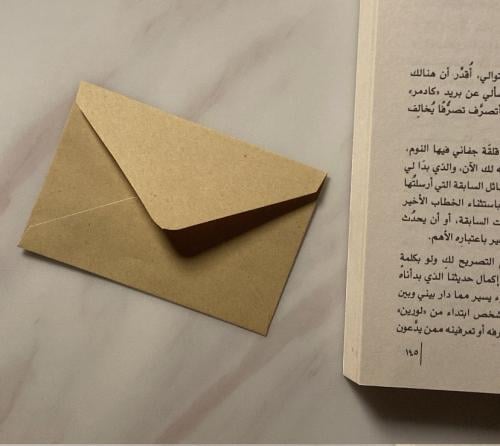 توالي، أُقدِّر أن هنالك
سألي عن بريد «كادمر»
تصرَّف تصرُّفًا يُخالِف
قلقة جفاني فيها النوم،
له لك الآن، والذي بدَا لي
ائل السابقة التي أرسلتُها
باستثناء الخطاب الأخير
ت السابقة، أو أن يحدُث
ير باعتباره الأهم.
التصريح لك ولو بكلمة
إكمال حديثنا الذي بدأناه
ء يسير مما دار بيني وبين
شخص ابتداء من «لورين»
رفه أو تعرفينه ممن يدَّعون
١٤٥